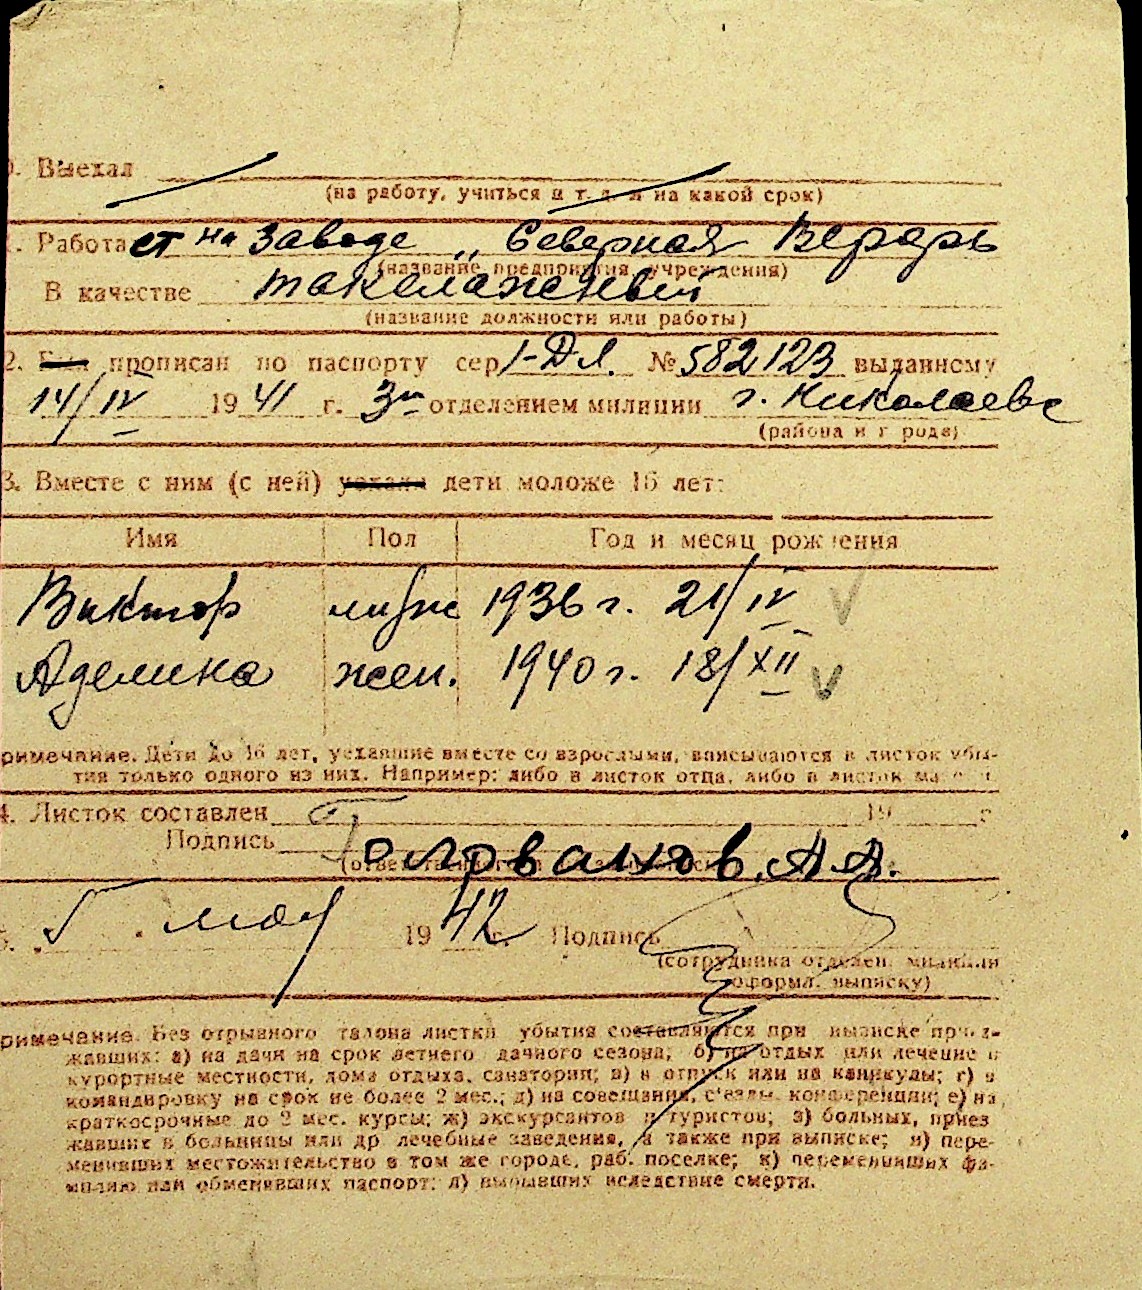 0. Выехал
(на работу, учиться и т. д. и на какой срок)
1. Работает на заводе „Северная Верфь
(название предприятия, учреждения)
В качестве такелажный
(название должности или работы)
2. Был прописан по паспорту сер. I-ДЛ. № 582123 выданному
14/IV 1941 г. 3м отделением милиции г. Николаеве
(района и города)
3. Вместе с ним (с ней) уехали дети моложе 16 лет:
Имя Пол Год и месяц рождения
Виктор муж 1936 г. 21/IV
Аделина жен. 1940 г. 18/XII
Примечание. Дети до 16 лет, уехавшие вместе со взрослыми, вписываются в листок убы-
тия только одного из них. Например: либо в листок отца, либо в листок матери.
4. Листок составлен 19 г.
Подпись Голованов А.А.
5. 5 мая 1942 г. Подпись
(сотрудника отделен. милиции
оформл. выписку)
Примечание. Без отрывного талона листки убытия составляются при выписке приез-
жавших: а) на дачи на срок летнего дачного сезона; б) на отдых или лечение в
курортные местности, дома отдыха, санатории; в) в отпуск или на каникулы; г) в
командировку на срок не более 2 мес.; д) на совещания, съезды, конференции; е) на
краткосрочные до 2 мес. курсы; ж) экскурсантов и туристов; з) больных, приез
жавших в больницы или др лечебные заведения, а также при выписке; и) пере-
менивших местожительство в том же городе, раб. поселке; к) переменивших фа-
милию или обменявших паспорт; л) выбывших вследствие смерти.